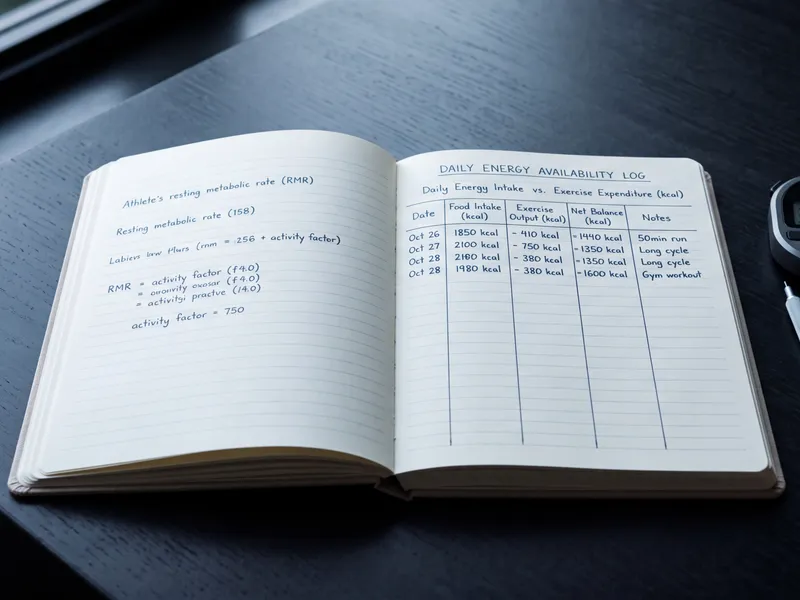 Athlete's resting metabolic rate (RMR)
Resting metabolic rate (158)
(rnm = 256 + activity factor)
RMR = activity factor (f4.0)
= (f4.0)
= (14.0)
activity factor = 750
DAILY ENERGY AVAILABILITY LOG
Daily Energy Intake vs. Exercise Expenditure (kcal)
Date Food Intake (kcal) Exercise Output (kcal) Net Balance (kcal) Notes
Oct 26 1850 kcal - 410 kcal =1440 kcal 50min run
Oct 27 2100 kcal - 750 kcal -1350 kcal Long cycle
Oct 28 kcal - 380 kcal -1350 kcal Long cycle
Oct 28 1980 kcal - 380 kcal -1600 kcal Gym workout